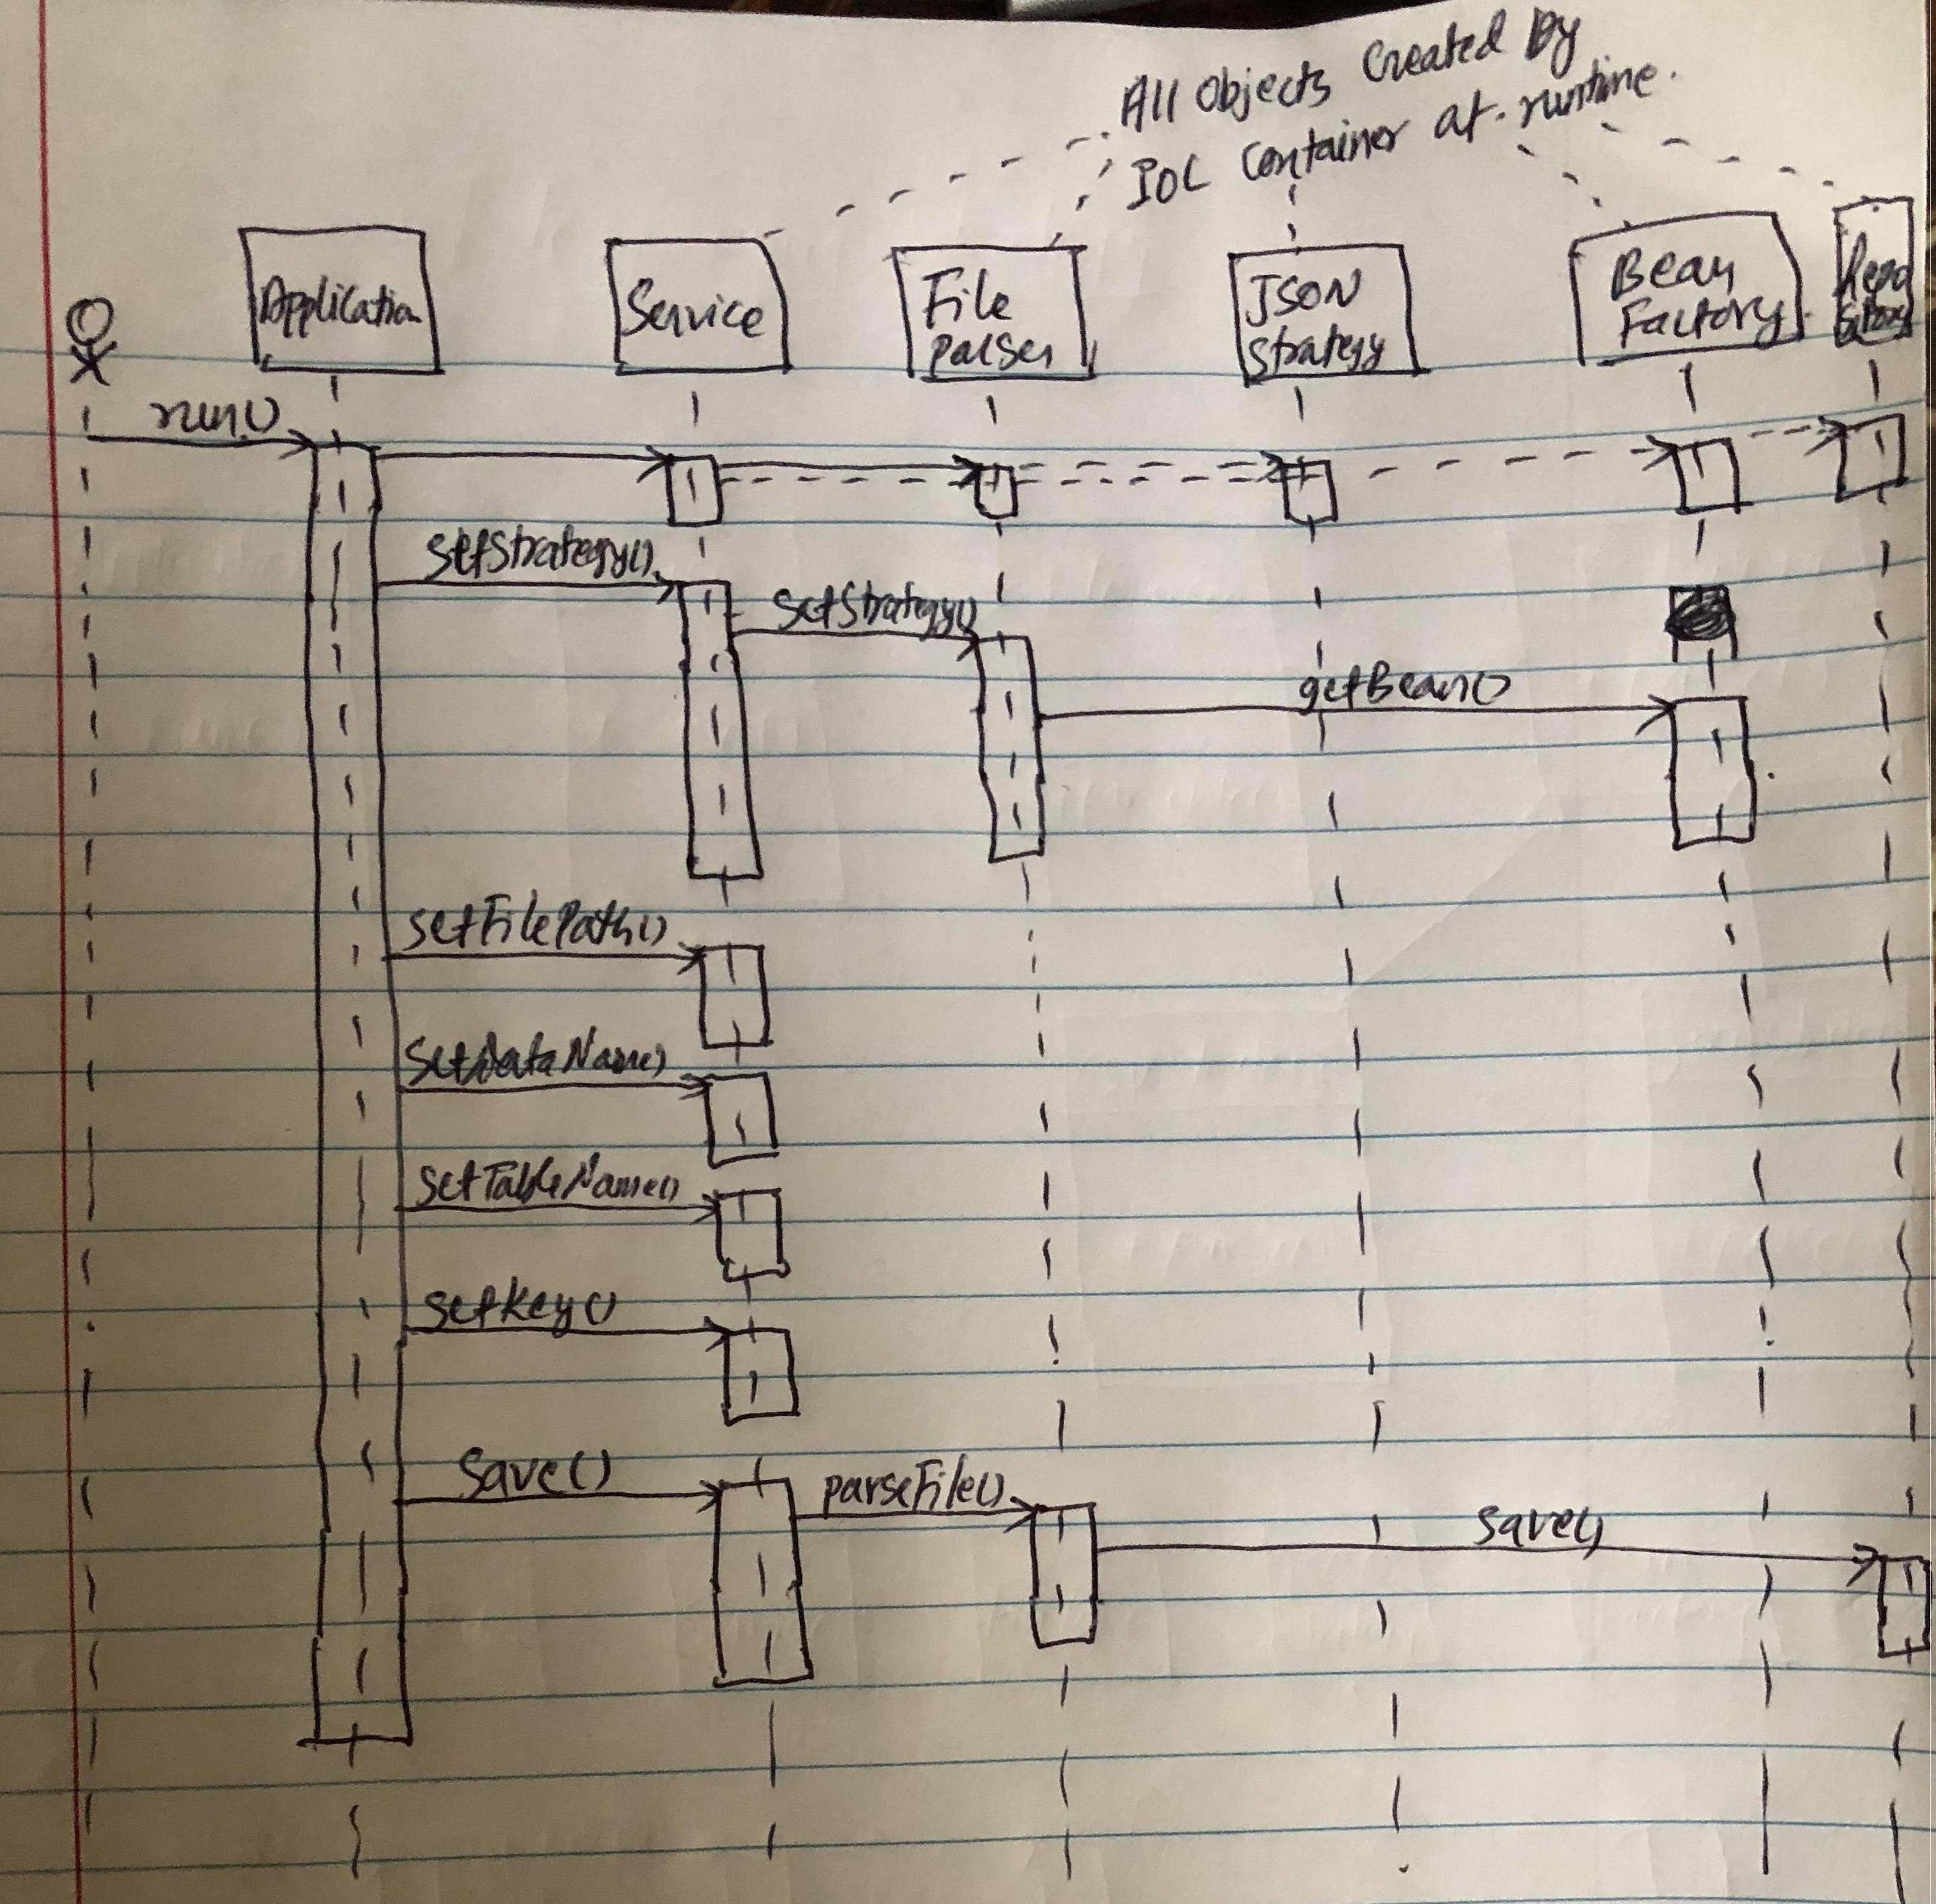 All Objects Created By
IOC Container at runtime.
Application
Service
File
Parser
JSON
Strategy
Bean
Factory
Repo
sitory
run()
setStrategy()
setStrategy()
getBean()
setFilePath()
setDataName()
setTableName()
setKey()
Save()
parseFile()
save()